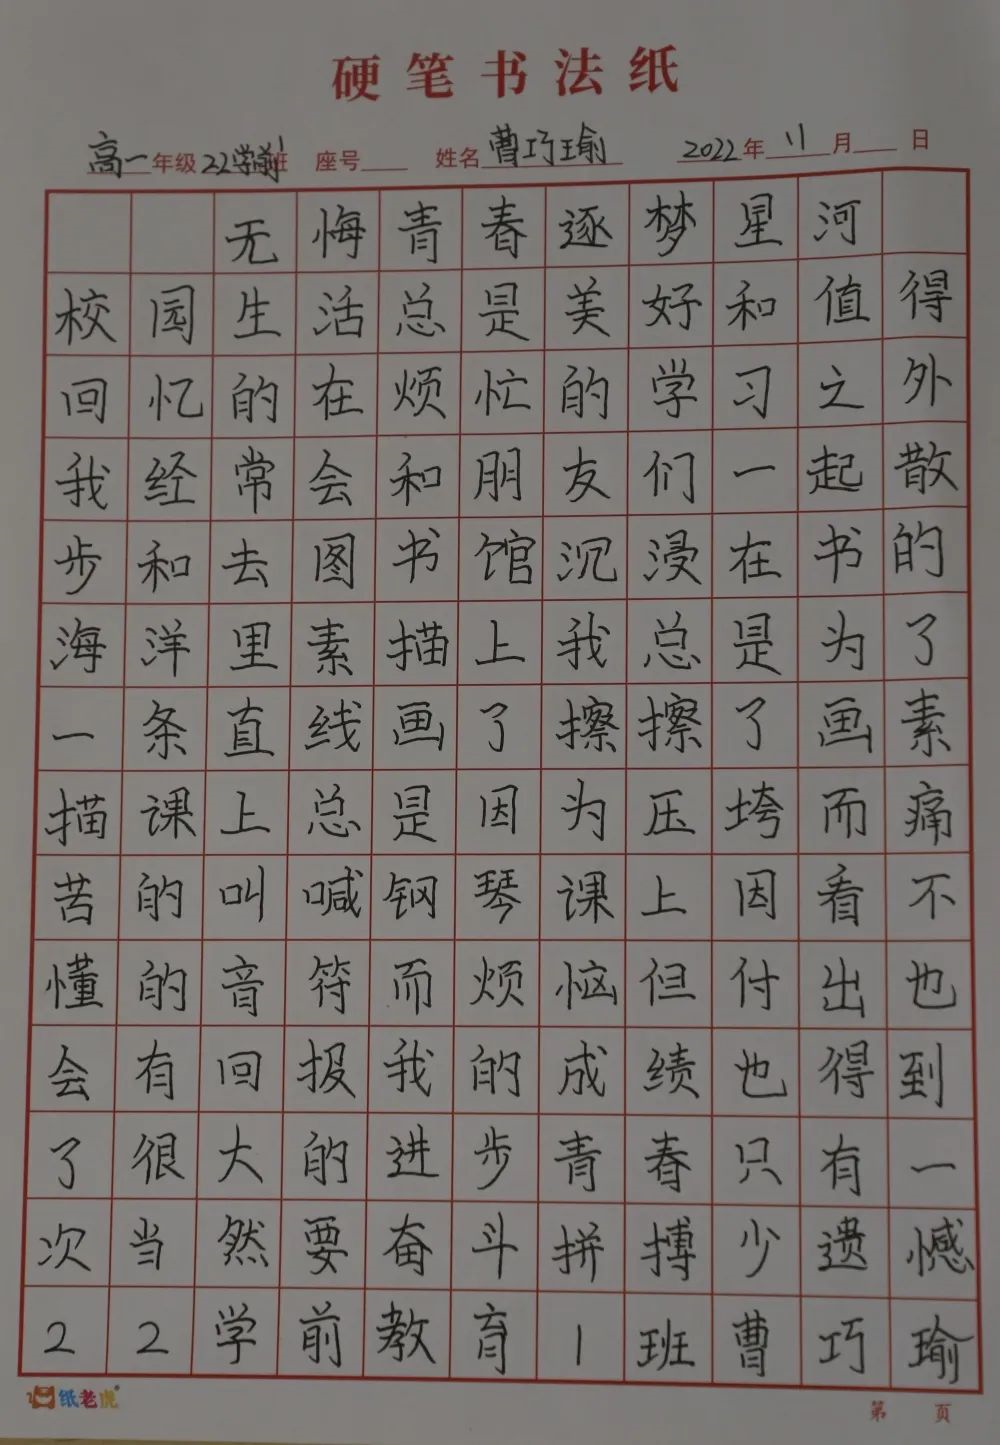 硬笔书法纸
高一年级22学前班 座号 姓名曹巧瑜 2022年11月 日
无悔青春逐梦星河
校园生活总是美好和值得
回忆的在烦忙的学习之外
我经常会和朋友们一起散
步和去图书馆沉浸在书的
海洋里素描上我总是为了
一条直线画了擦擦了画素
描课上总是因为压垮而痛
苦的叫喊钢琴课上因看不
懂的音符而烦恼但付出也
会有回报我的成绩也得到
了很大的进步青春只有一
次当然要奋斗拼搏少遗憾
22学前教育1班曹巧瑜
纸老虎
第 页